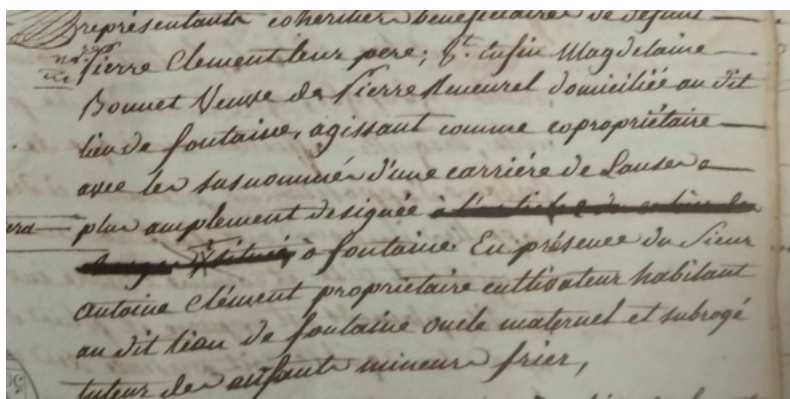 représentants cohéritiers bénéficiaires de défunt
Pierre Clement leur pere; & enfin Magdelaine
Bonnet Veuve de Pierre domiciliée au dit
lieu de fontaine, agissant comme copropriétaire
avec les susnommés d'une carrière de Lauses
plus amplement designée à
situé à fontaine. En présence du Sieur
Antoine Clément propriétaire cultivateur habitant
au dit lieu de fontaine oncle maternel et subrogé
tuteur des enfants mineurs frier,